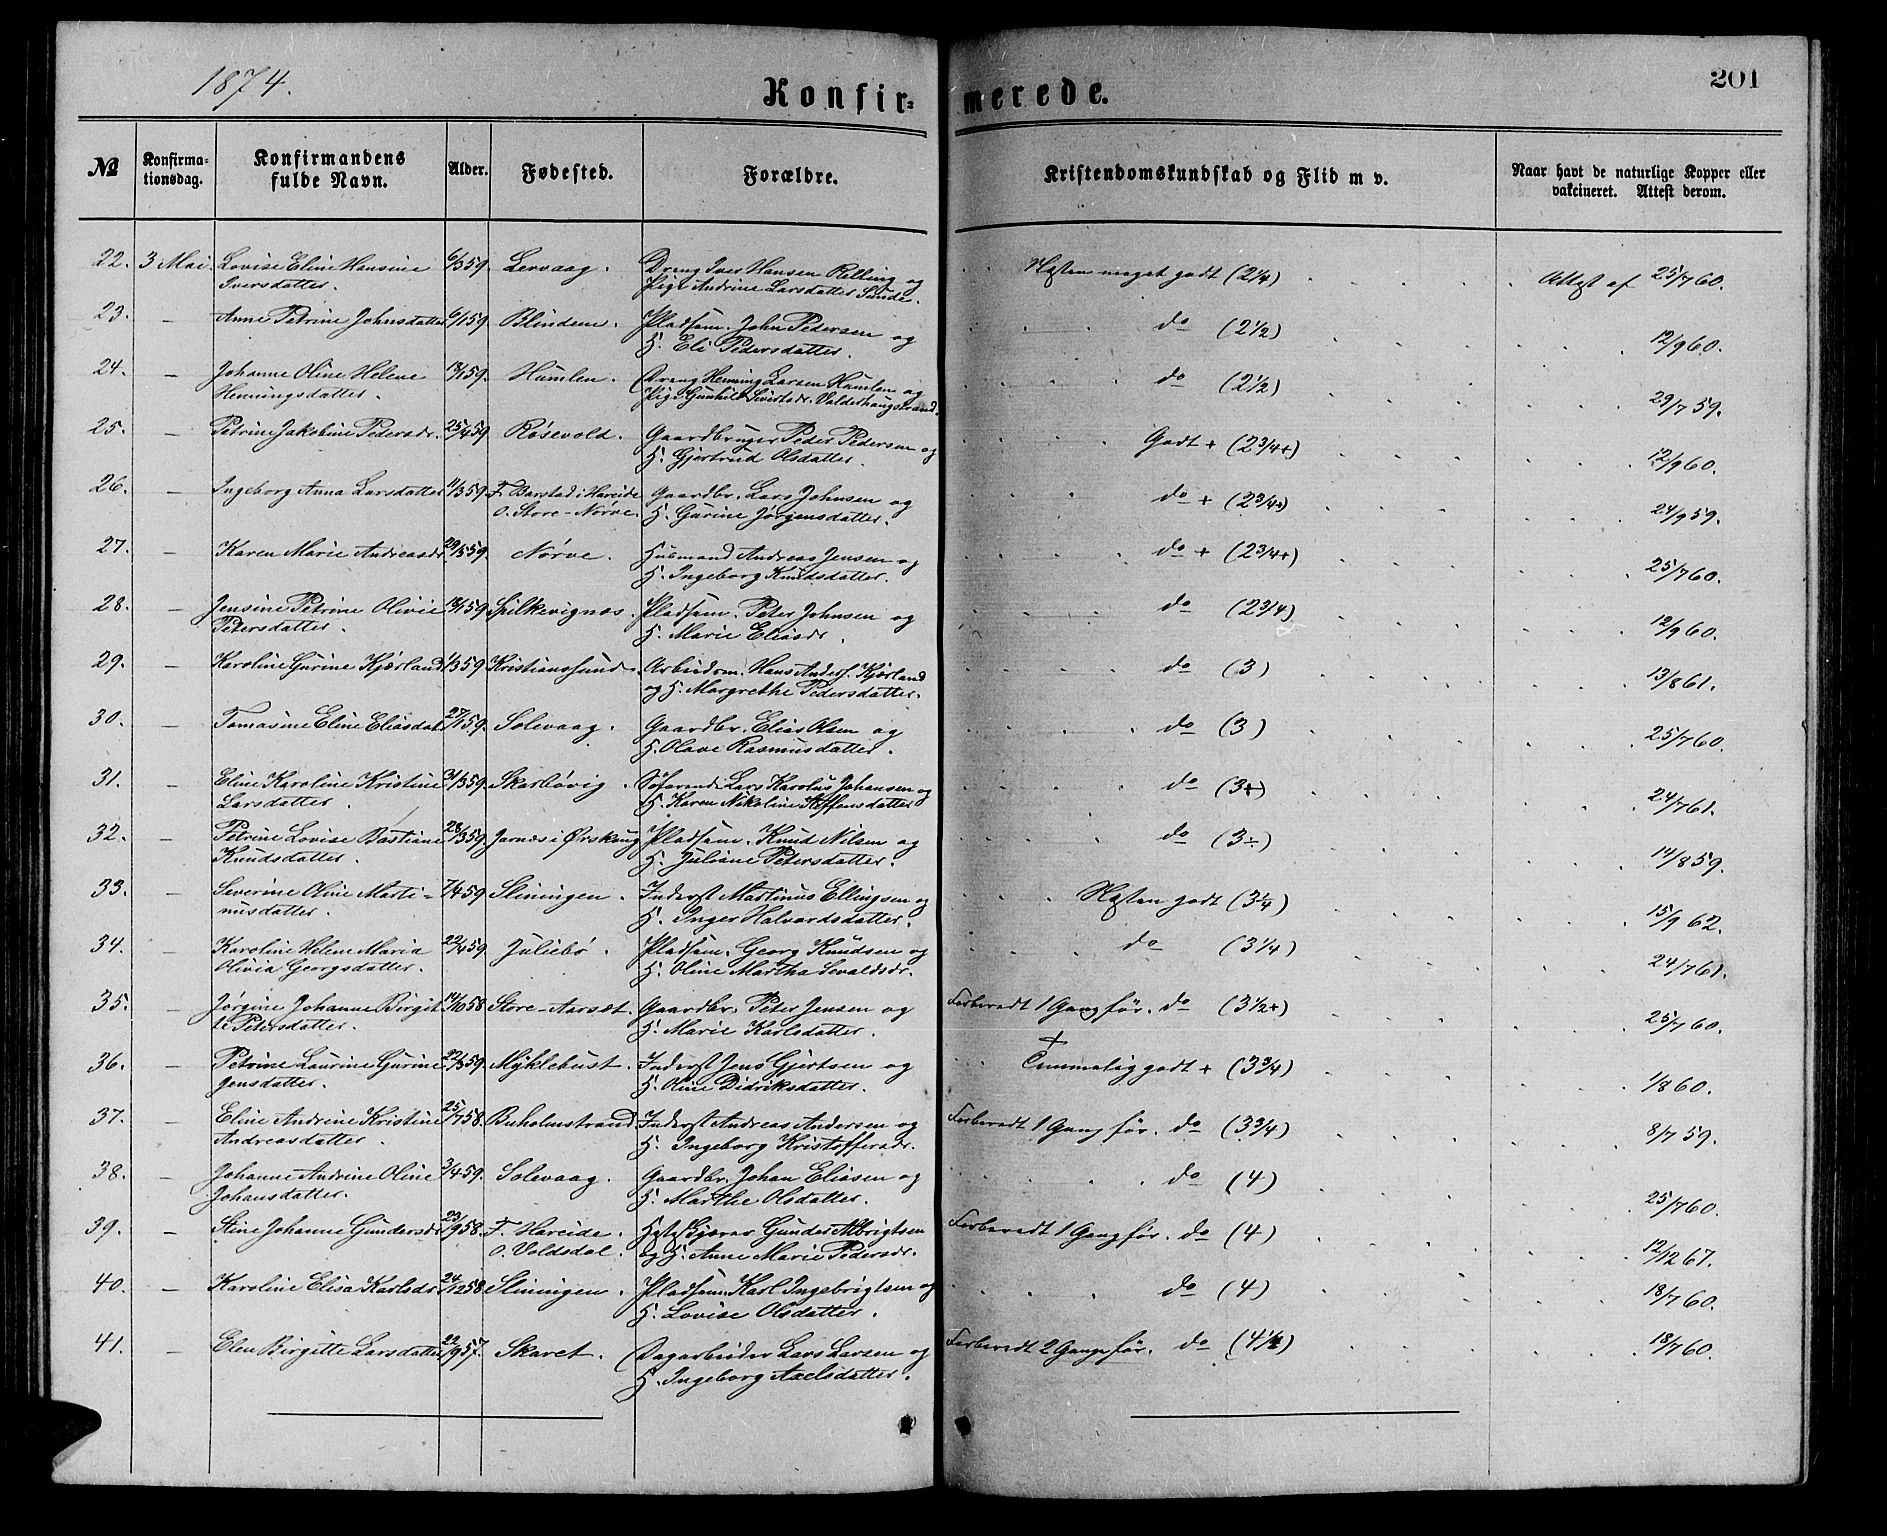 1874.
Konfir-
merede.
201
No
Konfirma-
tionsdag.
Konfirmandens
fulde Navn.
Alder.
Fødested.
Forældre.
Kristendomskundskab og Flid m v.
Naar havt de naturlige Kopper eller
vakcineret. Attest derom.
22. 3 Mai Lovise Eline Hansine 6/3 59. Lervaag. Dreng Iver Hansen Relling og Næsten meget godt (2 1/4) Attest af 25/7 60.
Iversdatter. Pige Andrine Larsdatter Sunde.
23. — Anne Petrine Johnsdatter 6/1 59. Blindem. Pladsm. John Pedersen og do (2 1/2) 12/9 60.
H. Eli Pedersdatter.
24. — Johanne Oline Helene 18/1 59. Humlen. Dreng Henning Larsen Humlen og do (2 1/2) 29/7 59.
Henningsdatter. Pige Gunhild Sivertsdr. Valderhaugstrand.
25. — Petrine Jakobine Pedersdr. 25/4 59 Røsevold. Gaardbruger Peder Pedersen og Godt + (2 3/4+) 12/9 60.
H. Gjertrud Olsdatter.
26. — Ingeborg Anna Larsdatter 11/3 59. F. Barstad i Hareide Gaardbr. Lars Johnsen og do + (2 3/4+) 24/9 59.
O. Store-Nørve. H. Gurine Jørgensdatter.
27. — Karen Marie Andreasdr. 29/5 59. Nørve. Husmand Andreas Jensen og do + (2 3/4+) 25/7 60.
H. Ingeborg Knudsdatter.
28. — Jensine Petrine Olivie 18/1 59 Spilkevignæs. Pladsm. Peter Johnsen og do (2 3/4) 12/9 60.
Petersdatter. H. Marie Eliasdr.
29. — Karoline Gurine Kjærland 1/3 59 Kristianssund. Arbeidsm. Hans Anders. Kjærland do (3) 13/8 61.
og H. Margrethe Pedersdatter.
30. — Tomasine Eline Eliasdat. 27/1 59. Solevaag. Gaardbr. Elias Olsen og do (3) 25/7 60.
H. Olave Rasmusdatter.
31. — Eline Karoline Kristine 31/3 59. Skarbøvig. Søfarende Lars Karolus Johansen og do (3+) 24/7 61.
Larsdatter. H. Karen Nikoline Steffensdatter
32. — Petrine Lovise Bastiane 28/3 59. Jarnes i Ørskoug Pladsm. Knud Nilsen og do (3÷) 14/8 59.
Knudsdatter. H. Juliane Petersdatter.
33. — Severine Oline Marti- 7/4 59. Slinningen. Inderst Martinus Ellingsen og Næsten godt (3 1/4) 15/9 62.
nusdatter. H. Inger Halvardsdatter.
34. — Karoline Helene Maria 22/4 59 Juliebø. Pladsm. Georg Knudsen og do (3 1/4) 24/7 61.
Olivia Georgsdatter. H. Oline Martha Sevaldsdr.
35. — Jørgine Johanne Birgit 14/10 58 Store-Aarsæt. Gaardbr. Peter Jensen og Forberedt 1 Gang før. do (3 1/2+) 25/7 60.
te Petersdatter. H. Marie Karlsdatter.
36. — Petrine Laurine Gurine 22/3 59. Myklebust. Inderst Jens Gjertsen og Temmelig godt + (3 3/4) 1/8 60.
Jensdatter. H. Oline Didriksdatter.
37. — Eline Andrine Kristine 25/7 58. Buholmstrand Inderst Andreas Andersen og Forberedt 1 Gang før. do (3 3/4) 8/7 59.
Andreasdatter. H. Ingeborg Kristoffersdr.
38. — Johanne Andrine Oline 3/4 59. Solevaag. Gaardbr. Johan Eliasen og do (4) 25/7 60.
Johansdatter. H. Marthe Olsdatter.
39. — Stine Johanne Gundersdr. 23/9 58. F. Hareide. Hesteskjærer Gunder Albrigtsen Forberedt 1 Gang før. do (4) 12/12 67.
O. Voldsdal. og H. Anne Marie Pedersdr.
40. — Karoline Elisa Karlsdr. 24/12 58 Slinningen. Pladsm. Karl Ingebrigtsen og do (4) 18/7 60.
H. Lovise Olsdatter.
41. — Elen Birgitte Larsdatter 22/9 57. Skaret. Dagarbeider Lars Larsen og Forberedt 2 Gange før. do (4 1/4) 18/7 60.
H. Ingeborg Axelsdatter.